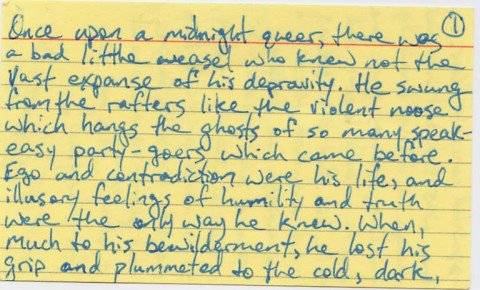 Once upon a midnight queer, there was ①
a bad little weasel who knew not the
vast expanse of his depravity. He swung
from the rafters like the violent noose
which hangs the ghosts of so many speak-
easy party-goers which came before.
Ego and contradiction were his life, and
illusory feelings of humility and truth
were the only way he knew. When,
much to his bewilderment, he lost his
grip and plummeted to the cold, dark,